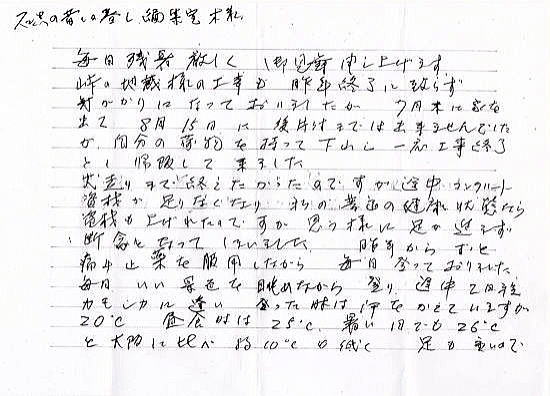 の昔しの暮し編集室 木村
毎日残暑厳しく 御見舞申し上げます
峠の地蔵様の工事も 昨年終了に致らず
気がかりになっておりましたが 7月末に家を
出て 8月15日に 後片付までは出来ませんでした
が 自分の荷物を持って下山し 一応工事終了
とし 帰阪して来ました
犬走りまで終えたかったのですが 途中コンクリート
資材が足りなくなり 私の 健康状態なら
資材も上げれたのですが 思う様に足が進まず
断念となってしまいました 昨年からずっと
痛み止薬を服用しながら 毎日登っておりました
毎日いい景色を眺めながら登り 途中で
カモシカに逢い 登った時は汗をかえていますが
20℃ 昼食時は25℃、暑い日でも26℃
と大阪に比べ 約10℃も低く 足が重いので